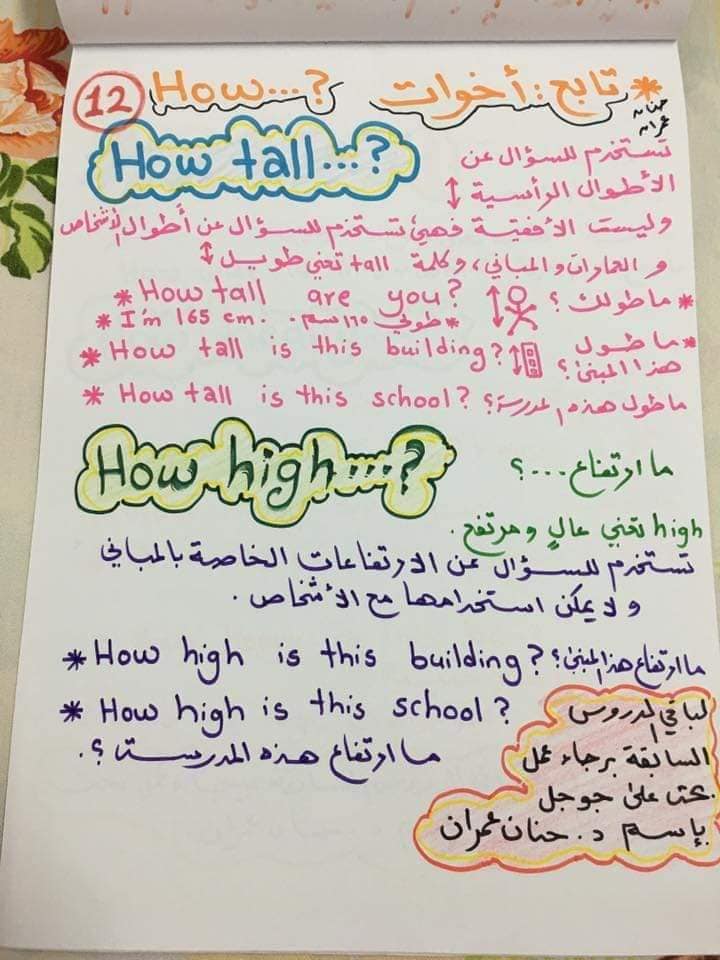 * تابع: أخوات How...? 12
حنان
عمران
How tall...? تستخدم للسؤال عن
الأطوال الرأسية ↕
وليست الأفقية فهي تستخدم للسؤال عن أطوال الأشخاص
و العمارات و المباني، وكلمة tall تعني طويل ↕
* How tall are you? * ما طولك؟
* I'm 165 cm. * طولي ١٦٥ سم.
* How tall is this building? * ما طول
هذا المبنى؟
* How tall is this school? ما طول هذه المدرسة؟
How high....? ما ارتفاع...؟
high تعني عالٍ و مرتفع.
تستخدم للسؤال عن الارتفاعات الخاصة بالمباني
و لا يمكن استخدامها مع الأشخاص.
* How high is this building? ما ارتفاع هذا المبنى؟
* How high is this school?
ما ارتفاع هذه المدرسة؟.
لباقي الدروس
السابقة برجاء عمل
بحث على جوجل
بإسم د. حنان عمران